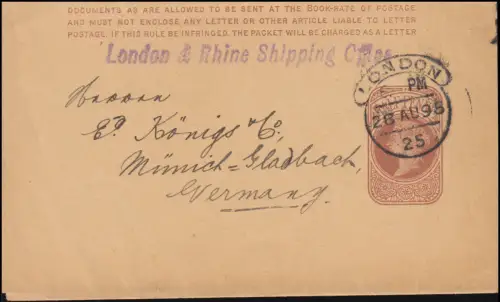 DOCUMENTS AS ARE ALLOWED TO BE SENT AT THE BOOK-RATE OF POSTAGE
AND MUST NOT ENCLOSE ANY LETTER OR OTHER ARTICLE LIABLE TO LETTER
POSTAGE. IF THIS RULE BE INFRINGED, THE PACKET WILL BE CHARGED AS A LETTER
London & Rhine Shipping Offices
LONDON
PM
28 AU 98
25
Herren
Ed. Königs & Co,
Münich-Gladbach,
Germany.